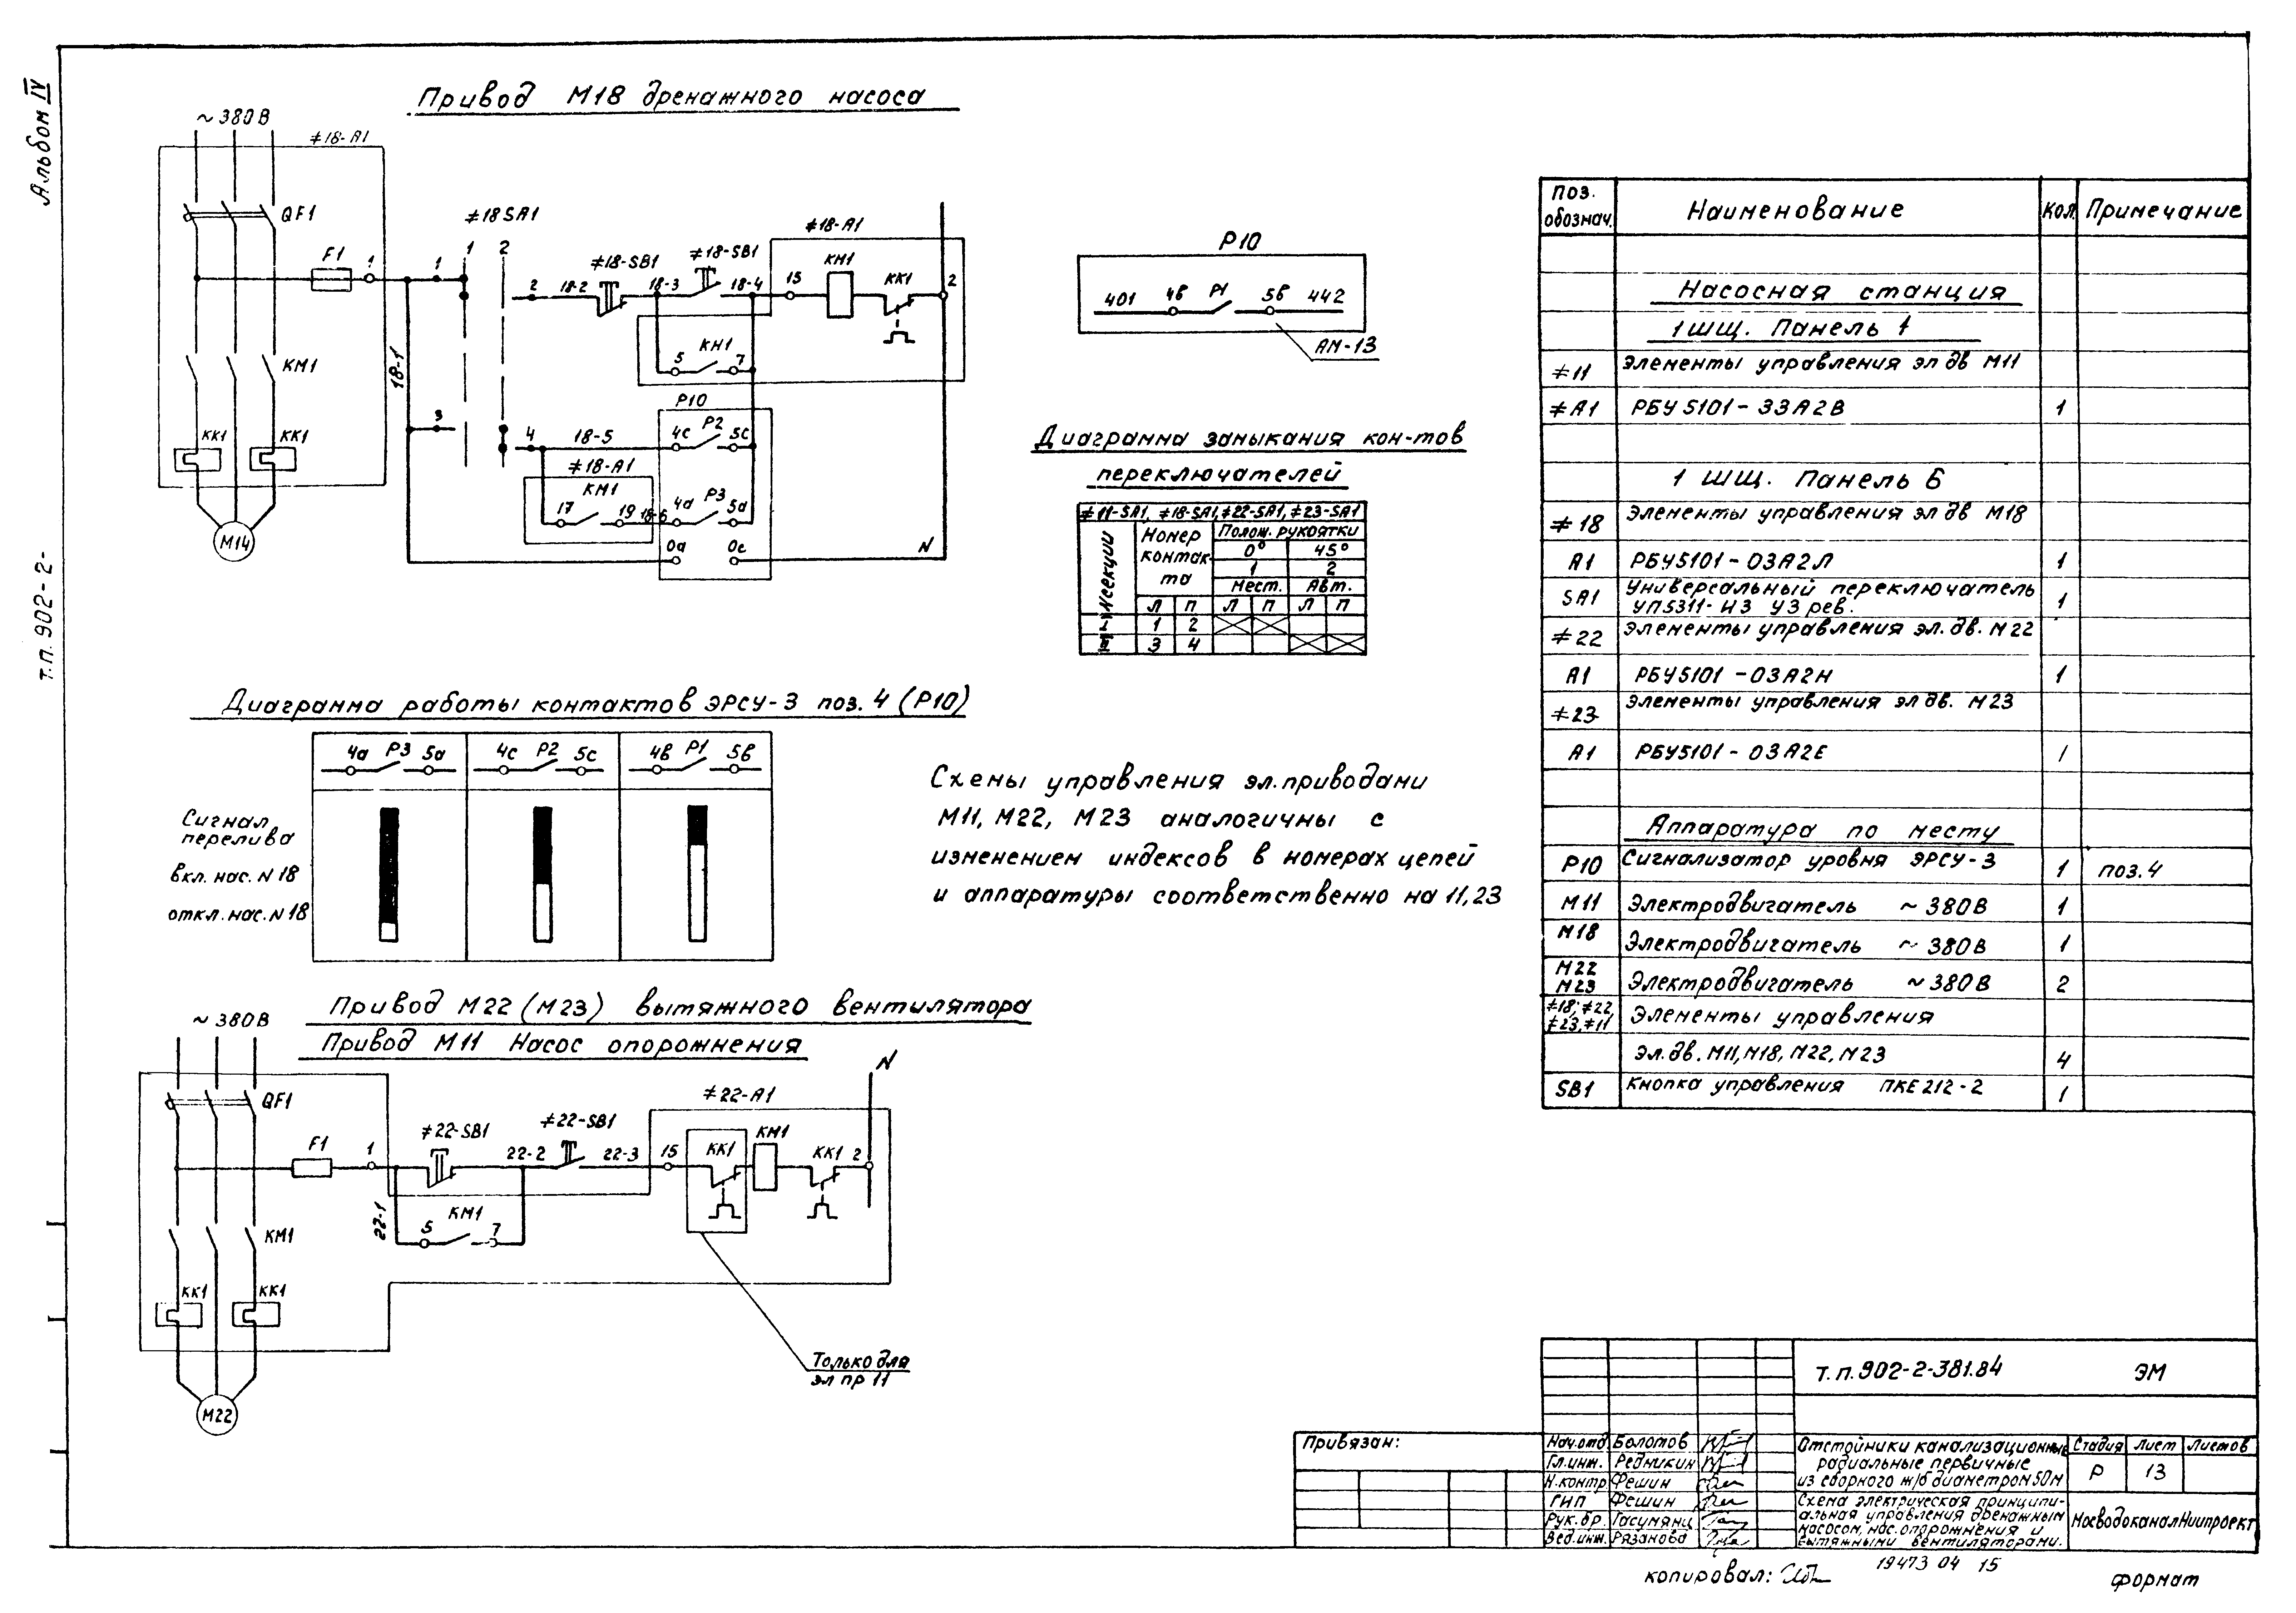 Альбом IV
т.п. 902-2-
Привод М18 дренажного насоса
~380В
≠18-А1
QF1
F1
1
КМ1
КК1
КК1
М14
18-1
≠18SA1
1
2
1
2
18-2
≠18-SB1
18-3
≠18-SB1
18-4
≠18-А1
15
КМ1
КК1
2
5
КН1
7
3
4
18-5
Р10
4с
Р2
5с
≠18-А1
КМ1
17
19
18-6
4а
Р3
5а
0а
0с
N
Р10
401
4в
Р1
5в
442
АМ-13
Диаграмма замыкания кон-тов
переключателей
≠11-SA1, ≠18-SA1, ≠22-SA1, ≠23-SA1
№секции
Номер контак-та
Полож. рукоятки
0°
45°
1
2
Мест.
Авт.
Л
П
Л
П
Л
П
I
1
2
II
3
4
Диаграмма работы контактов ЭРСУ-3 поз. 4 (Р10)
4а
Р3
5а
4с
Р2
5с
4в
Р1
5в
Сигнал
перелива
вкл. нас. N 18
откл. нас. N 18
Схемы управления эл.приводами
М11, М22, М23 аналогичны с
изменением индексов в номерах цепей
и аппаратуры соответственно на 11,23
Привод М22 (М23) вытяжного вентилятора
Привод М11 Насос опорожнения
~380В
QF1
F1
1
КМ1
КК1
КК1
М22
22-1
≠22-SB1
22-2
≠22-SB1
22-3
5
КМ1
7
≠22-А1
15
КК1
КМ1
КК1
2
N
Только для
эл пр 11
Поз. обознач.
Наименование
Кол.
Примечание
Насосная станция
1 ШЩ. Панель 1
≠11
Элементы управления эл дв М11
≠А1
РБУ 5101-33А2В
1
1 ШЩ. Панель 6
≠18
Элементы управления эл дв М18
А1
РБУ5101-03А2Л
1
SA1
Универсальный переключатель
УП5311-И3 У3 рев.
1
≠22
Элементы управления эл. дв. М22
А1
РБУ5101-03А2Н
1
≠23
Элементы управления эл дв. М23
А1
РБУ5101-03А2Е
1
Аппаратура по месту
Р10
Сигнализатор уровня ЭРСУ-3
1
поз.4
М11
Электродвигатель ~380В
1
М18
Электродвигатель ~380В
1
М22
М23
Электродвигатель ~380В
2
≠18; ≠22
≠23, ≠11
Элементы управления
эл.дв. М11, М18, М22, М23
4
SB1
Кнопка управления ПКЕ 212-2
1
Т.П. 902-2-381.84 ЭМ
Привязан:
Нач.отд Болотов
Гл.инж. Редникин
Н.контр. Фешин
ГИП Фешин
Рук.бр. Гасумянц
Вед.инж. Рязанова
Отстойники канализационные
радиальные первичные
из сборного ж/б диаметром 50м
Стадия
Лист
Листов
Р
13
Схема электрическая принципи-
альная управления дренажным
насосом, нас. опорожнения и
вытяжными вентиляторами.
МосводоканалНИИпроект
копировал:
19473 04 15
формат